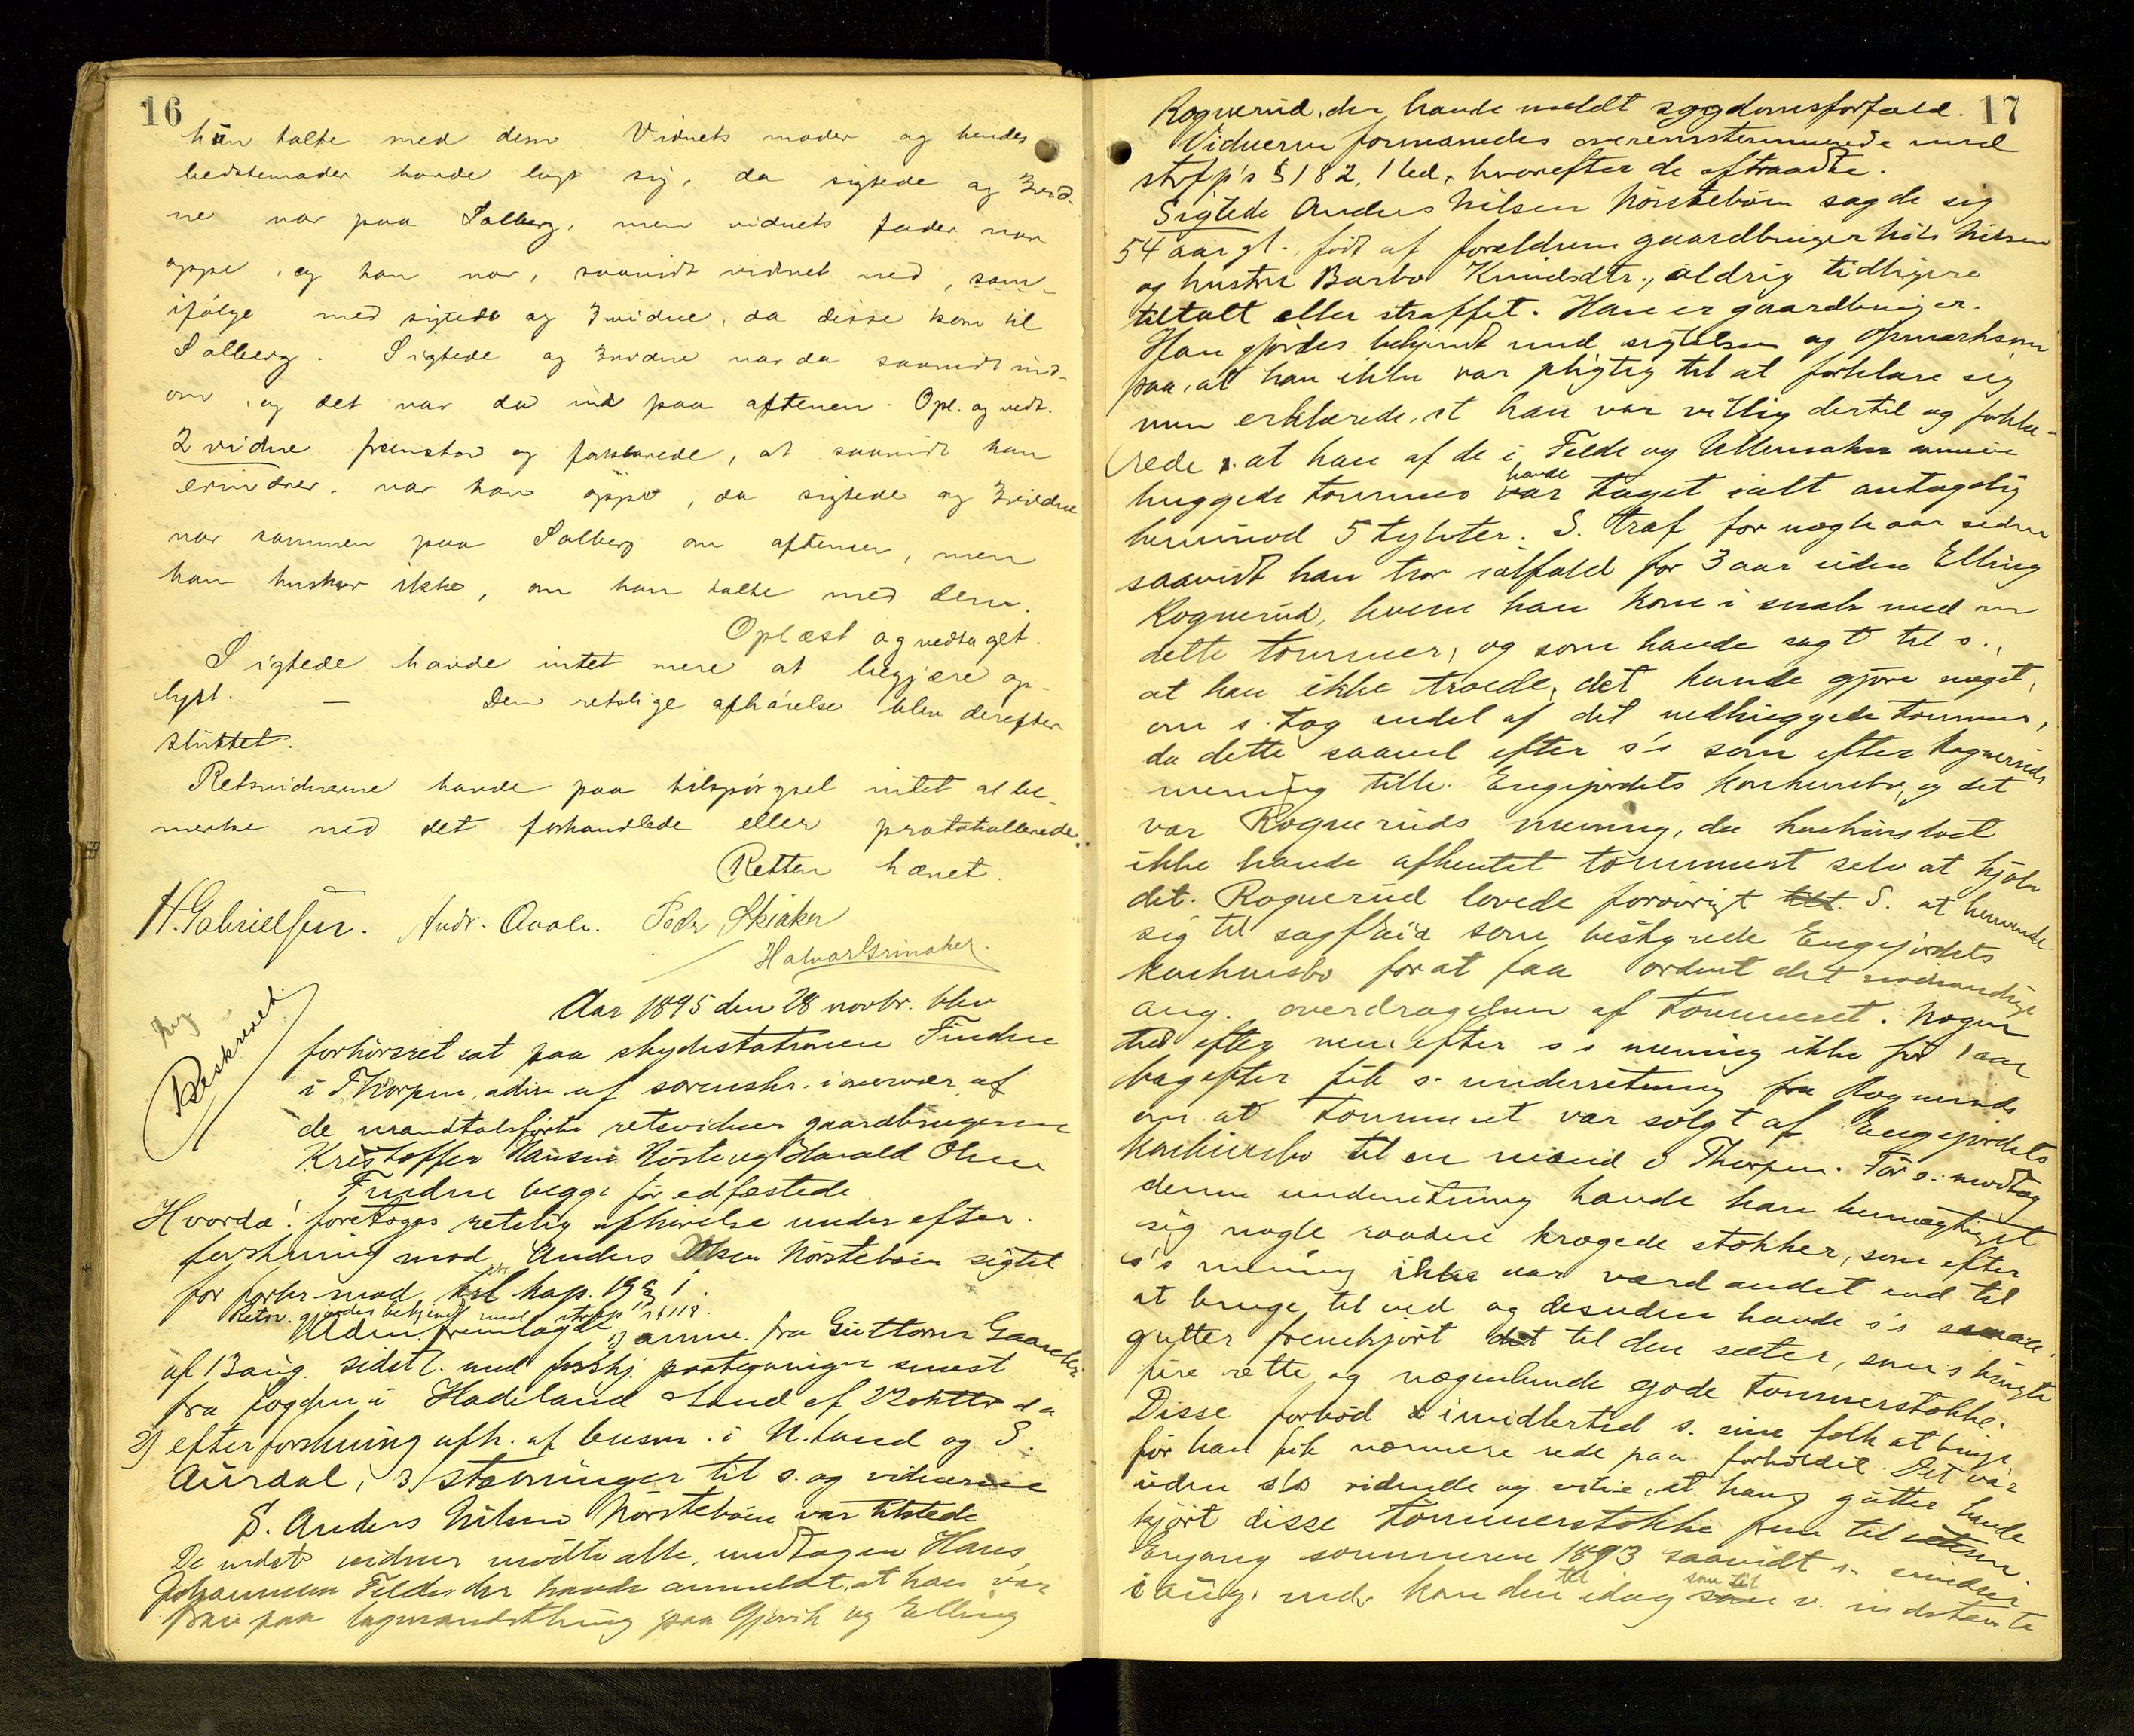 16
han talte med dem. Vidnets moder og hendes
bedstemoder havde lagt sig, da sigtede og 3 vid-
ne var paa Solberg, men vidnets fader var
oppe, og han var, saavidt vidnet ved, sam-
ifølge med sigtede og 3 vidne, da disse kom til
Solberg. Sigtede og 3 vidne var da saavidt ind-
om, og det var da ud paa aftenen. Opl. og vedt.
2 vidne fremstod og forklarede, at saavidt han
erindrer, var han oppe, da sigtede og 3 vidne
var sammen paa Solberg om aftenen, men
han husker ikke, om han talte med dem.
Oplæst og vedtaget.
Sigtede havde intet mere at begjære op-
lyst. — Den retslige afhørelse blev derefter
sluttet.
Retsvidnerne havde paa tilspørgsel intet at be-
merke ved det forhandlede eller protokollerede.
Retten hævet.
H. Gabrielsen. Andr. Avale. Peder Skiaker
Halvor Grinaker.
Beskrevet.
Aar 1895 den 28 novbr. blev
forhørsret sat paa skydsstationen Finden
i Thorpen, adm. af sorenskr. i nærvær af
de mandtalsførte retsvidner gaardbrugerne
Kristoffer Hansen Høste og Harald Olsen
Finden begge før edfæstede.
Hvorda! foretoges retslig afhørelse under efter-
forskning mod Anders Nørstebøen sigtet
for forbr. mod kap. 19 § 1.
Retsv. gjordes bekjendt med strfp's § 118.
Uden fremlagde 1) anm. fra Guttorm Gaarder
af 13 aug. sidstl. med forskj. paategninger senest
fra fogden i Hadeland Land af 22 oktbr d a
2) efterforskning afh. af lensm. i N. Land og S.
Aurdal, 3) stevninger til s. og vidnerne
S. Anders Nilsen Nørstebøen var tilstede
De indst. vidner mødte alle, undtagen Hans
Johannesen Felde der havde anmeldt, at han var
paa lagmandsthing paa Gjøvik og Elling
17
Rognerud, der havde meldt sygdomsforfald.
Vidnerne formanedes overensstemmende med
strfp's § 182, 1 led, hvorefter de aftraadte.
Sigtede Anders Nilsen Nørstebøen sagde sig
54 aar gl., født af forældrene gaardbruger Nils Nilsen
og hustru Barbro Knudsdtr., aldrig tidligere
tiltalt eller straffet. Han er gaardbruger.
Han gjordes bekjendt med sigtelsen og opmærksom
paa, at han ikke var pligtig til at forklare sig
men erklærede, at han var villig dertil og forkla-
rede: at han af de i Felde og Ullensaker
havde
huggede tømmer var taget ialt antagelig
henimod 5 tylvter. S. traf for nogle aar siden
saavidt han tror ialfald for 3 aar siden Elling
Rognerud, hvem han kom i snak med om
dette tømmer, og som havde sagt til s.,
at han ikke troede, det kunde gjøre noget,
om s. tog endel af det nedhuggede tømmer,
da dette saavel efter s's som efter Rogneruds
mening tilh. Engejordets konkursbo, og det
var Rogneruds mening, da konkursboet
ikke havde afhentet tømmeret selv at kjøbe
det. Rognerud lovede forøvrigt S. at henvende
sig til sagfører som bestyrede Engejordets
konkursbo for at faa ordnet det nødvendige
ang. overdragelsen af tømmeret. Nogen
tid efter men efter s's mening ikke før 1 aar
bagefter fik s. underretning fra Rognerud
om at tømmeret var solgt af Engejordets
konkursbo til en mand i Thorpen. Før s. modtog
denne underretning havde han bemægtiget
sig nogle raadne krogede stokker, som efter
s's mening ikke var værd andet end til
at bruge til ved og desuden havde s's
gutter fremkjørt til den sæter, som s brugte
fire rette og nogenlunde gode tømmerstokke.
Disse forbød imidlertid s. sine folk at bruge
før han fik nærmere rede paa forholdet. Det var
uden s's vidende og vilje, at hans gutter havde
kjørt disse tømmerstokke frem til sætren
Engang sommeren 1893 saavidt s. erindrer
til som til
i aug. md. kom den idag som v. indstevnte